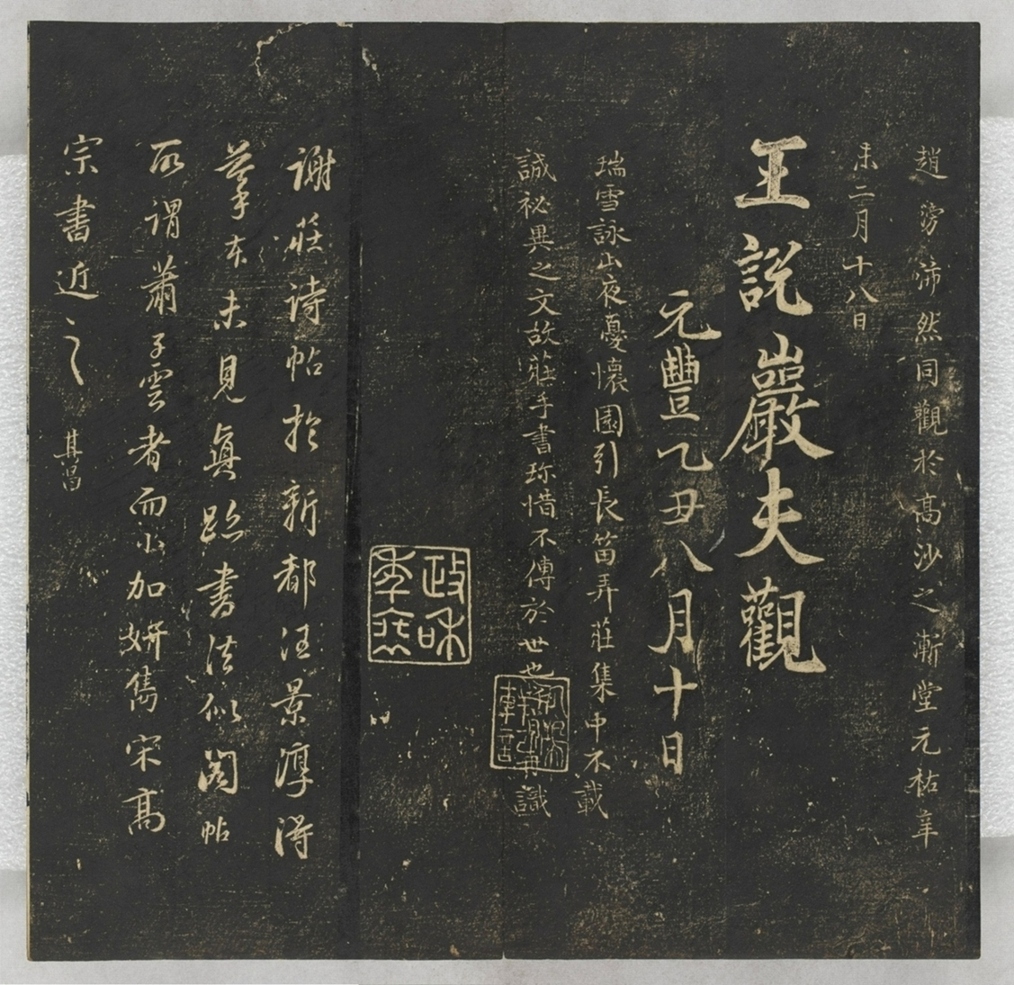 趙滂沛然同觀於高沙之漸堂元祐辛
未二月十八日
王說巖夫觀
元豐乙丑八月十日
瑞雪詠山夜憂懷園引長笛弄莊集中不載
誠祕異之文故莊手書珎惜不傳於世也
再識
政和
謝莊詩帖於新都汪景淳得
摹本未見真跡書法似閣帖
所謂蕭子雲者而小加妍雋宋高
宗書近之
其昌